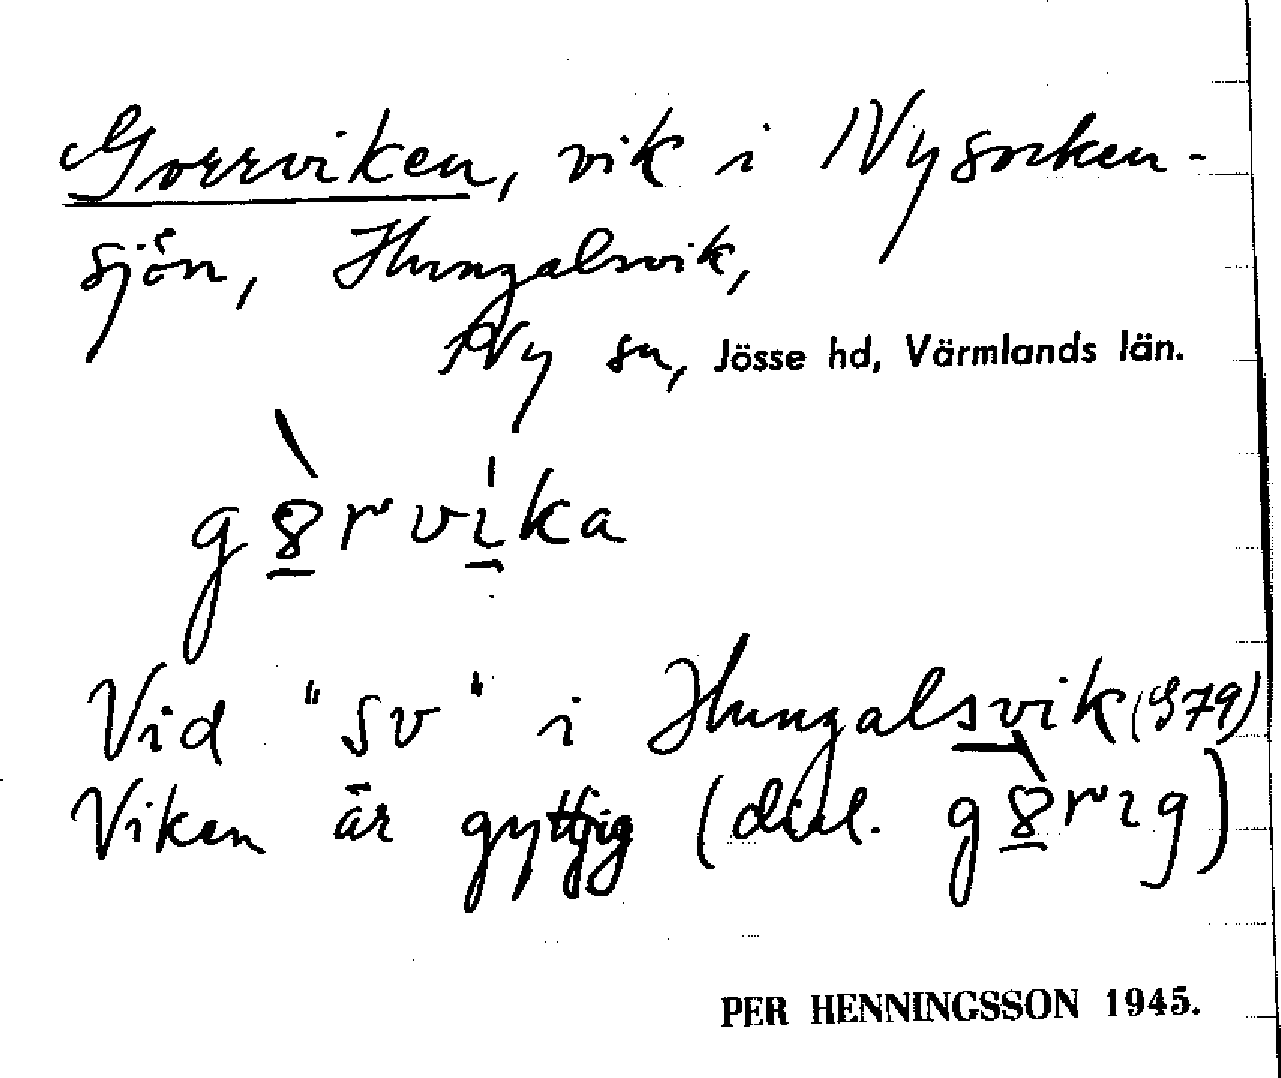 Gorrviken, vik i Nysocken-
sjön, Hungalsvik,
Ny sn, Jösse hd, Värmlands län.
g8̱̀rvi̱ka
Vid "sv" i Hungalsvik (S79)
Viken är gyttjig (dial. g8̱̀rıg)
PER HENNINGSSON 1945.